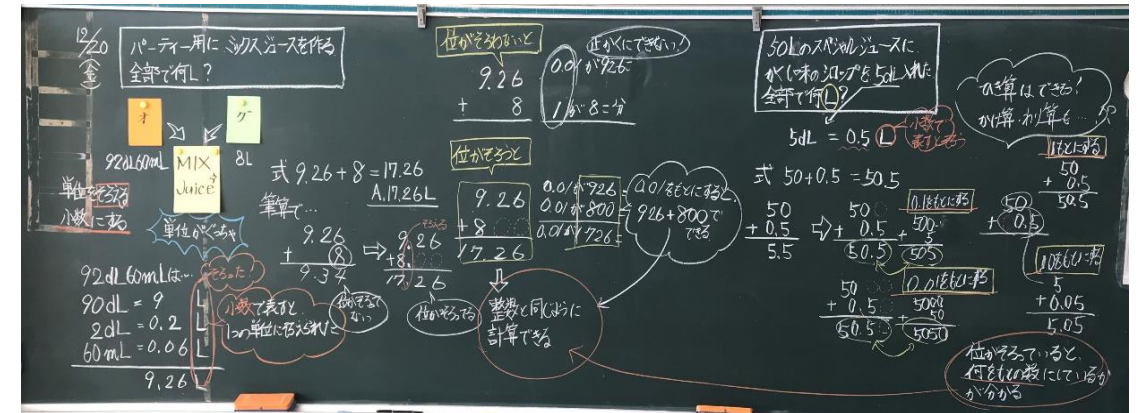 12/20
(金)
パーティー用にミックスジュースを作る
全部で何L?
オ
グ
92dL60mL
8L
MIX
Juice
単位をそろえる
小数にする
単位がぐっちゃ
92dL60mLは…
そろった!
90dL = 9 L
2dL = 0.2 L
60mL = 0.06 L
9.26 L
小数で表すと
1つの単位にそろえられた
式 9.26+8=17.26
A.17.26L
筆算で…
9.26
+ 8
9.34
位がそろって
ない
⇨
そろえる
9.26
+8.
17.26
位がそろってる
位がそろわないと
9.26
+ 8
正かくにできない!
0.01が926こ
1が8こ分
位がそろうと
9.26
+8
17.26
0.01が926
0.01が800
0.01が1726
0.01をもとにすると、
926+800で
できる
整数と同じように
計算できる
50Lのスペシャルジュースに
がくい味のシロップを5dL入れた
全部で何L?
5dL = 0.5 L
小数で
表すとそろう
式 50+0.5=50.5
50
+ 0.5
5.5
⇨
50
+ 0.5
50.5
0.1をもとにする
500
+ 5
505
50
+ 0.5
50.5
0.01をもとにする
5000
+ 50
5050
ひき算はできる!
かけ算・わり算も…
1をもとにする
50
+ 0.5
50.5
50
+ 0.5
10をもとにする
5
+0.05
5.05
位がそろっていると、
何をもとの数にしているか
が分かる